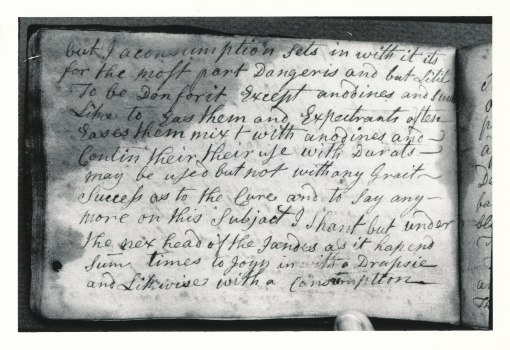 but I a consumption sets in with it its
for the most part Dangeris and but Litle
To be Don for it Except anodines and
Like to Eas them and Expectrants often
Eases them mixt with anodines and
Contin their their use with Durats
may be used but not with any Grait
Success as to the Cure and to Say any-
more on this Subject I Shant but under
the nex head of the Jandis as it hapens
Sum times to Joyn in with a Drapsie
and Likwise with a Consumption